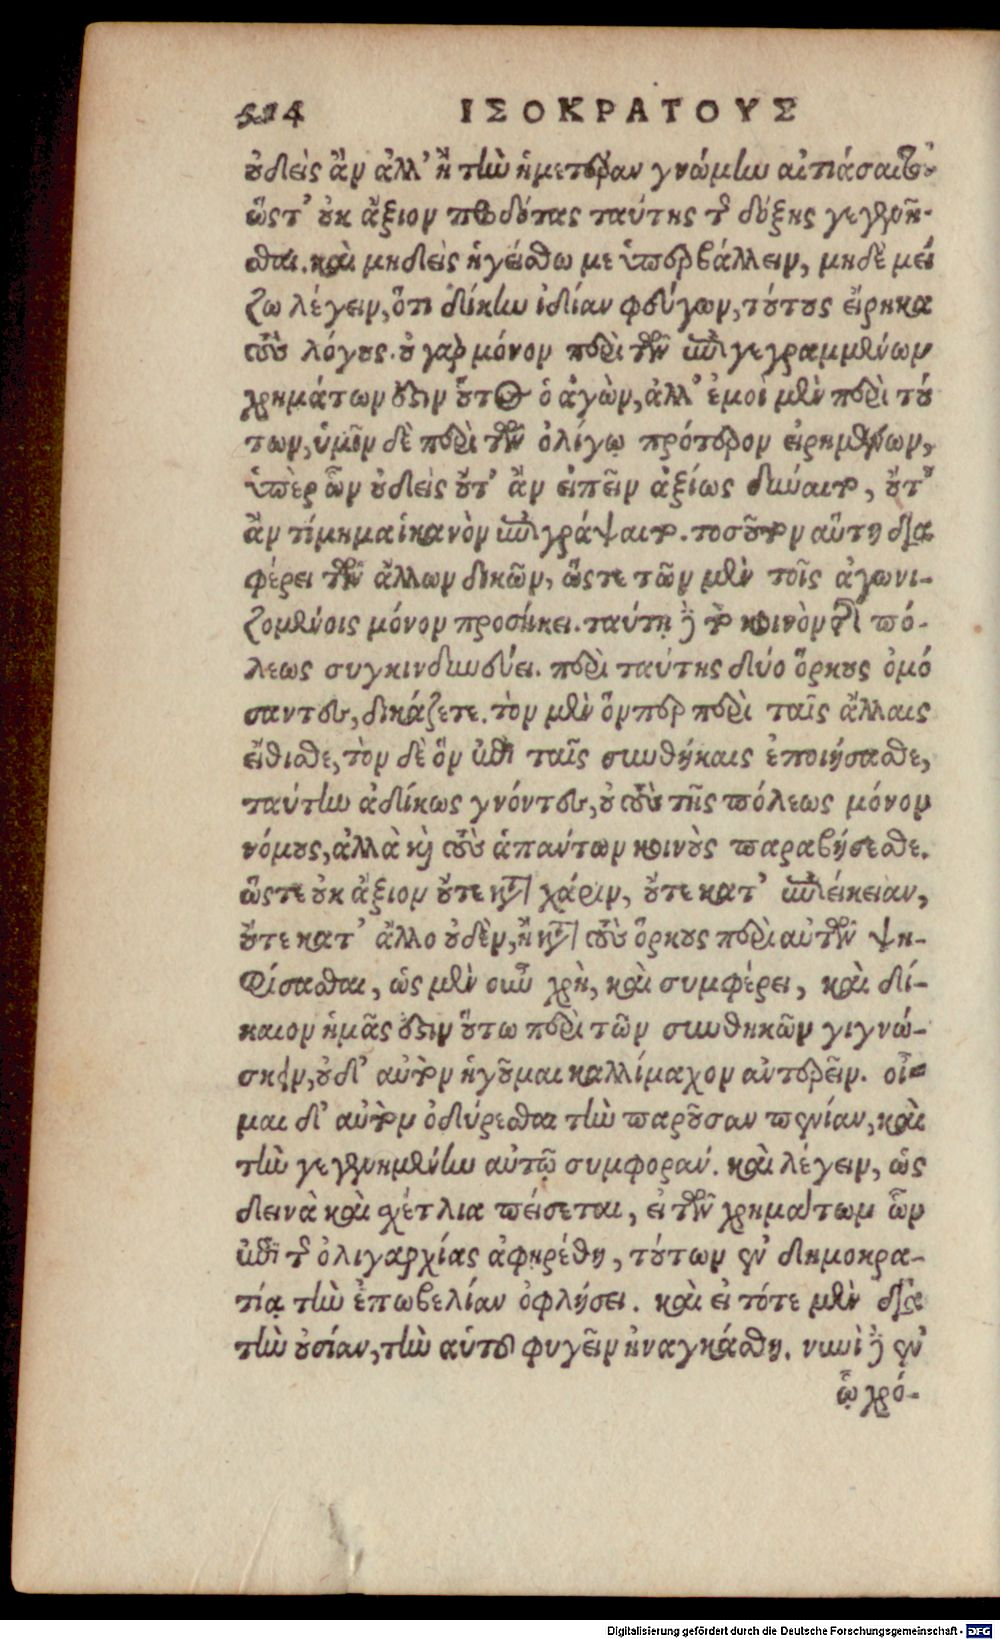 524 ΙΣΟΚΡΑΤΟΥΣ
οὐδεὶς ἂν ἀλλ’ ἢ τὴν ἡμετέραν γνώμην αἰτιάσαιτο.
ὥςτ’ οὐκ ἄξιον προδότας ταύτης τῆς δόξης γεγενῆ-
σθαι. καὶ μηδεὶς ἡγείσθω με ὑπερβάλλειν, μηδὲ μεί
ζω λέγειν, ὅτι δίκην ἰδίαν φεύγων, τούτους εἴρηκα
τοὺς λόγους. οὐ γὰρ μόνον περὶ τῶν ἐπιγεγραμμένων
χρημάτων ἐστιν οὗτος ὁ ἀγὼν, ἀλλ’ ἐμοὶ μὲν περὶ τού
των, ὑμῖν δὲ περὶ τῶν ὀλίγῳ πρότερον εἰρημένων,
ὑπὲρ ὧν οὐδεὶς οὔτ’ ἂν εἰπεῖν ἀξίως δύναιτο, οὔτ’
ἂν τίμημα ἱκανὸν ἐπιγράψαιτο. τοσοῦτον αὕτη δια
φέρει τῶν ἄλλων δικῶν, ὥςτε τῶν μὲν τοῖς ἀγωνι-
ζομένοις μόνον προσήκει. ταύτῃ δὲ τὸ κοινὸν τῆς πό-
λεως συγκινδυνεύει. περὶ ταύτης δύο ὅρκους ὀμό
σαντες, δικάζετε. τὸν μὲν ὅνπερ περὶ ταῖς ἄλλαις
εἴθισθε, τὸν δὲ ὃν ἐπὶ ταῖς συνθήκαις ἐποιήσασθε,
ταύτην ἀδίκως γνόντες, οὐ τοὺς τῆς πόλεως μόνον
νόμους, ἀλλὰ καὶ τοὺς ἁπάντων κοινοὺς παραβήσεσθε.
ὥςτε οὐκ ἄξιον οὔτε κατὰ χάριν, οὔτε κατ’ ἐπιείκειαν,
οὔτε κατ’ ἄλλο οὐδὲν, ἢ κατὰ τοὺς ὅρκους περὶ αὐτῶν ψη-
φίσασθαι, ὡς μὲν οὖν χρὴ, καὶ συμφέρει, καὶ δί-
καιον ἡμᾶς ἐστιν οὕτω περὶ τῶν συνθηκῶν γιγνώ-
σκειν, οὐδ’ αὐτὸν ἡγοῦμαι καλλίμαχον ἀντερεῖν. οἶ-
μαι δ’ αὐτὸν ὀδύρεσθαι τὴν παροῦσαν πενίαν, καὶ
τὴν γεγενημένην αὐτῷ συμφοράν. καὶ λέγειν, ὡς
δεινὰ καὶ σχέτλια πείσεται, εἰ τῶν χρημάτων ὧν
ἐπὶ τῆς ὀλιγαρχίας ἀφῃρέθη, τούτων ἐν δημοκρα-
τίᾳ τὴν ἐπωβελίαν ὀφλήσει. καὶ εἰ τότε μὲν δια
τὴν οὐσίαν, τὴν αὑτοῦ φυγεῖν ἠναγκάσθη. νυνὶ δὲ ἐν
ᾧ χρό-
Digitalisierung gefördert durch die Deutsche Forschungsgemeinschaft - DFG